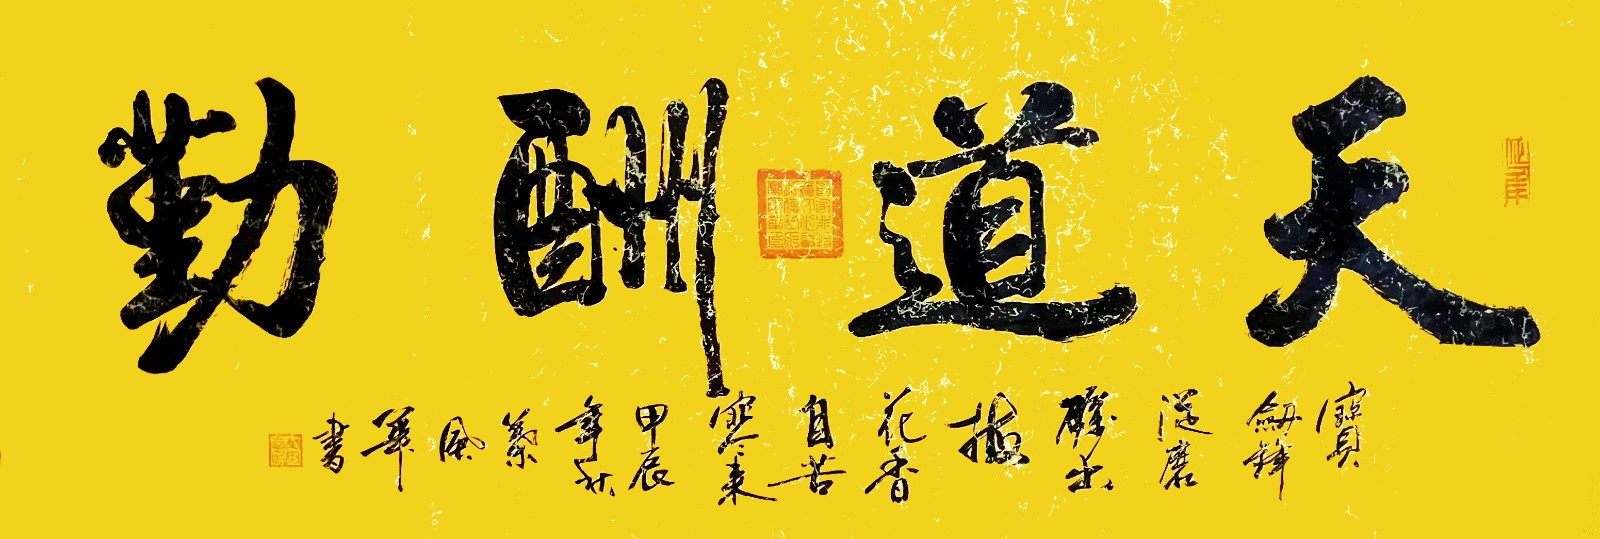 天道酬勤
寶
劍鋒
從磨
礪出
梅
花香
自苦
寒来
甲辰
年秋
風
華
書